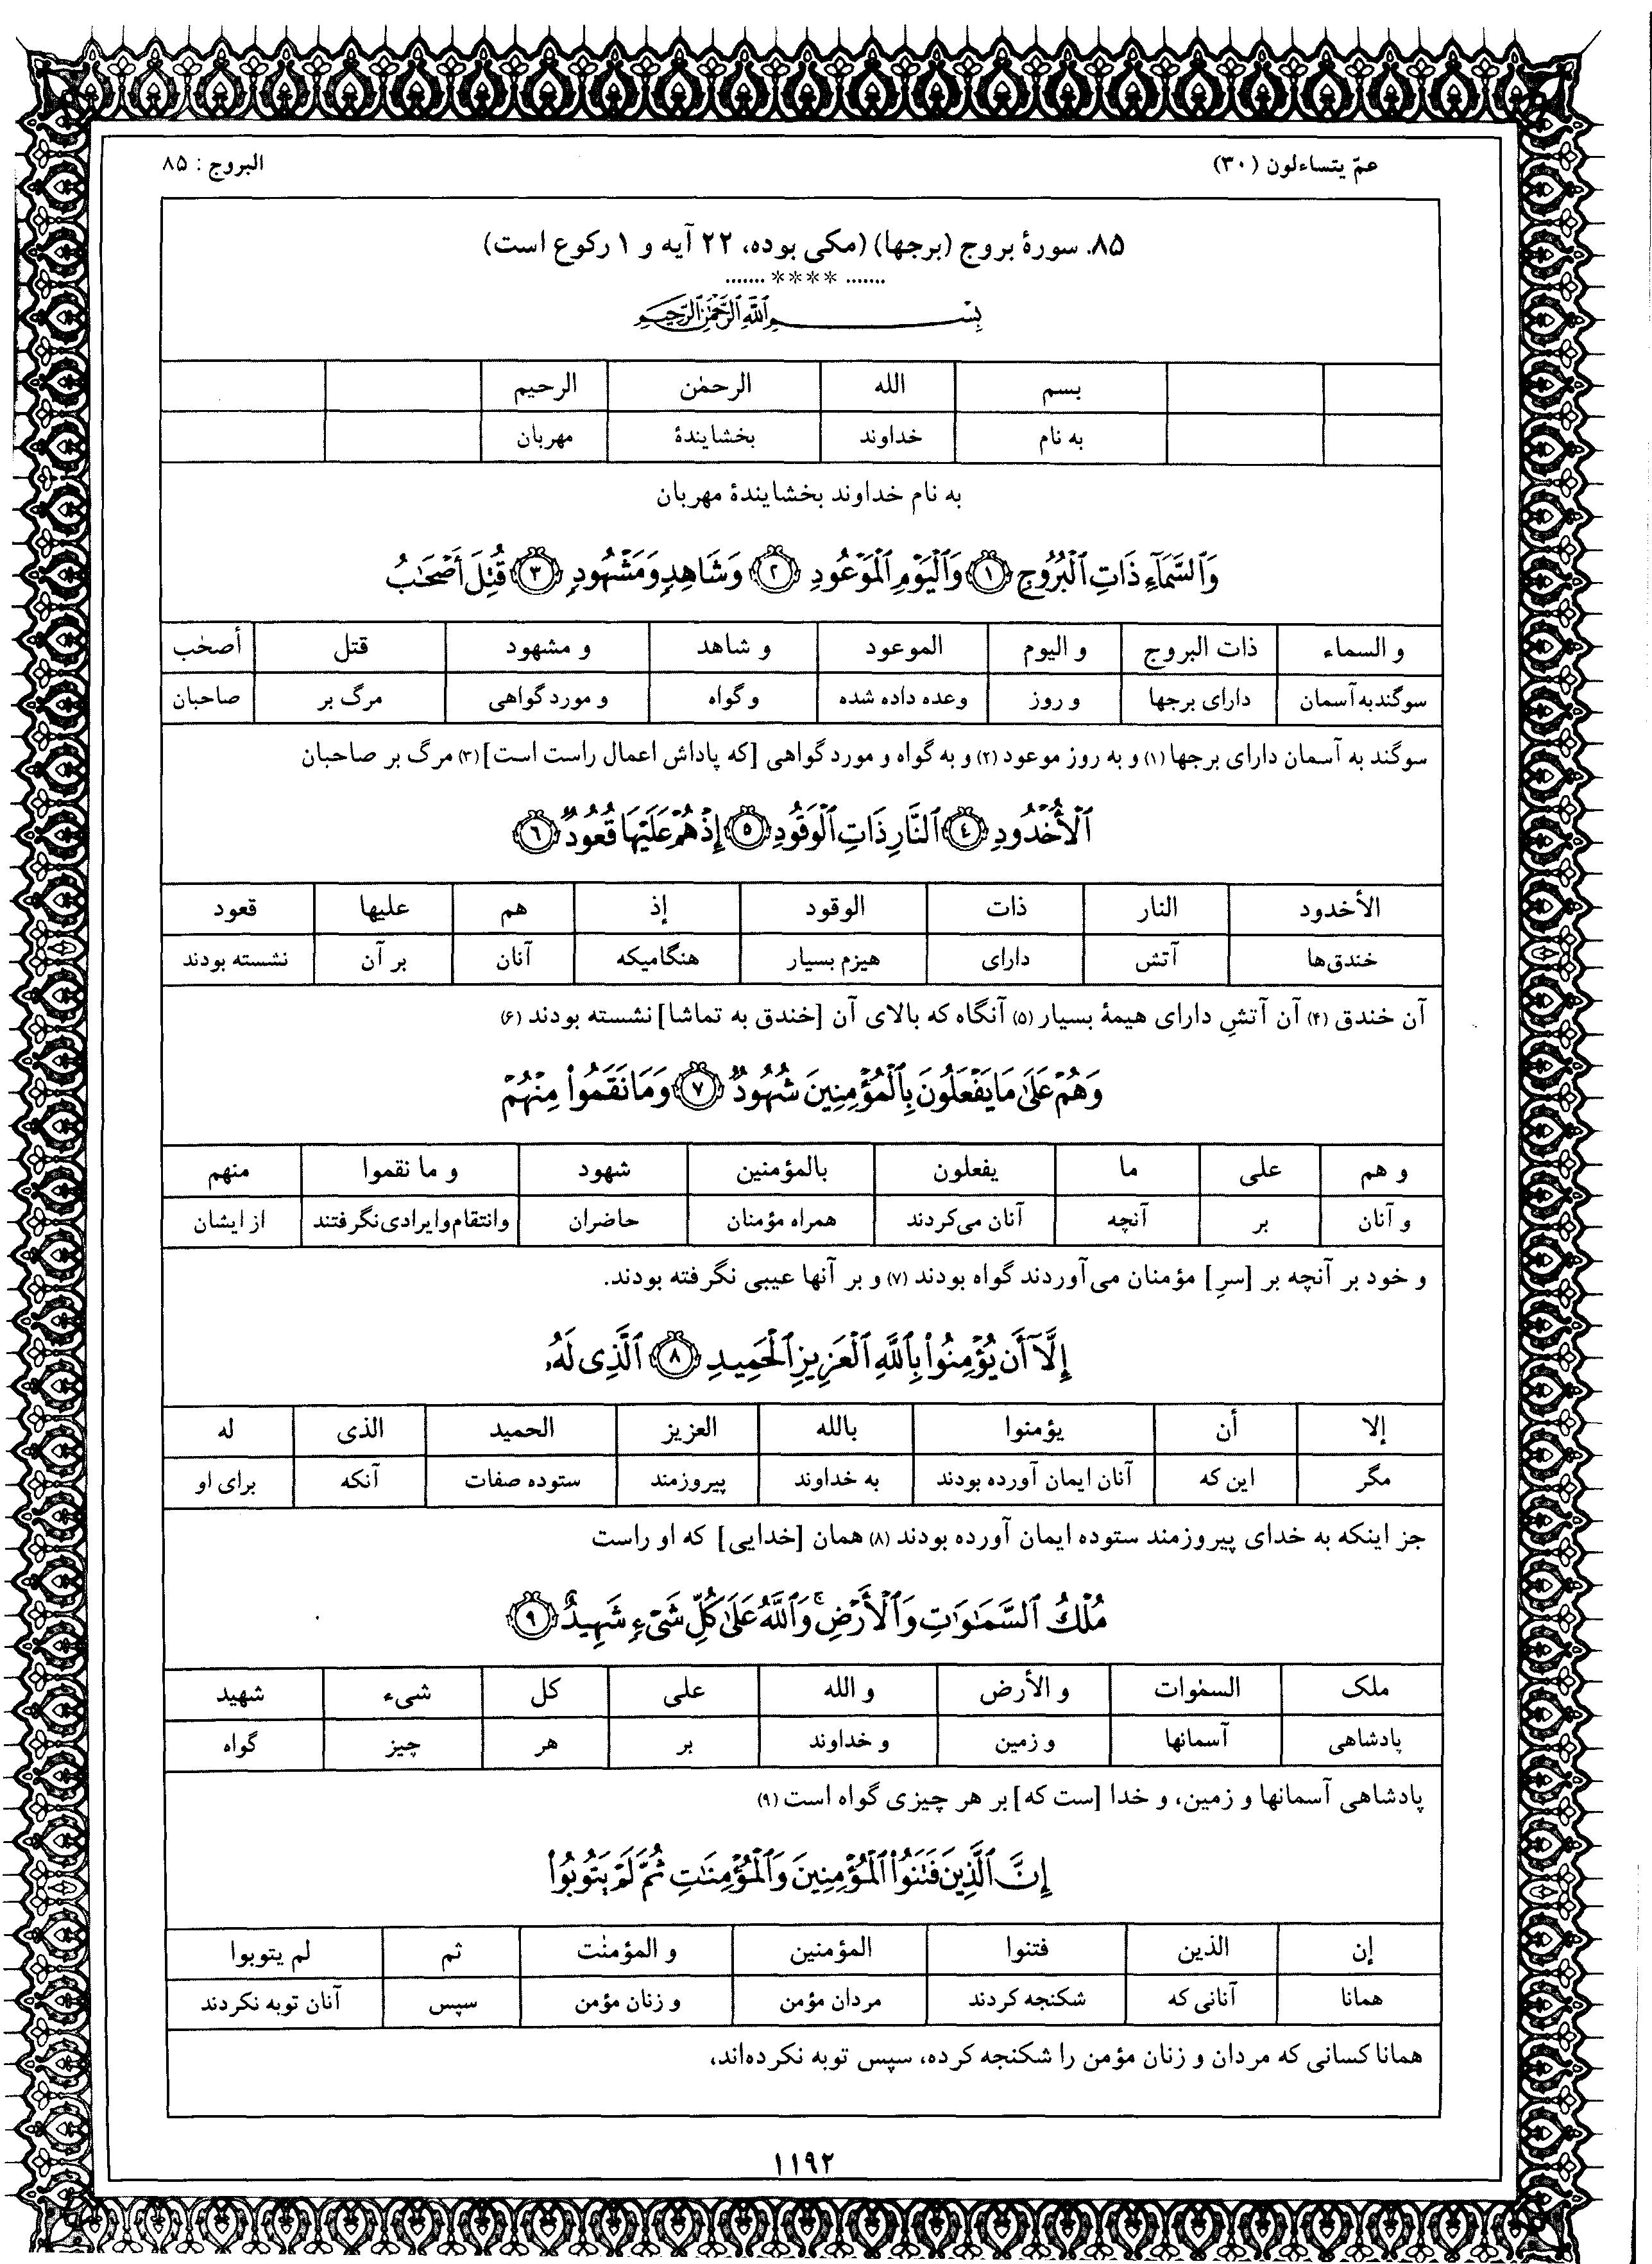 عمّ یتساءلون (۳۰)
البروج : ۸۵
۸۵. سورهٔ بروج (برجها) (مکی بوده، ۲۲ آیه و ۱ رکوع است)
....... **** .......
بِسْمِ ٱللَّهِ ٱلرَّحْمَٰنِ ٱلرَّحِيمِ
بسم الله الرحمٰن الرحیم
به نام خداوند بخشایندهٔ مهربان
به نام خداوند بخشایندهٔ مهربان
وَٱلسَّمَآءِ ذَاتِ ٱلْبُرُوجِ ﴿١﴾ وَٱلْيَوْمِ ٱلْمَوْعُودِ ﴿٢﴾ وَشَاهِدٍ وَمَشْهُودٍ ﴿٣﴾ قُتِلَ أَصْحَٰبُ
و السماء ذات البروج و الیوم الموعود و شاهد و مشهود قتل أصحٰب
سوگندبه آسمان دارای برجها و روز وعده داده شده و گواه و مورد گواهی مرگ بر صاحبان
سوگند به آسمان دارای برجها (۱) و به روز موعود (۲) و به گواه و مورد گواهی [که پاداش اعمال راست است] (۳) مرگ بر صاحبان
ٱلْأُخْدُودِ ﴿٤﴾ ٱلنَّارِ ذَاتِ ٱلْوَقُودِ ﴿٥﴾ إِذْ هُمْ عَلَيْهَا قُعُودٌ ﴿٦﴾
الأخدود النار ذات الوقود إذ هم علیها قعود
خندق‌ها آتش دارای هیزم بسیار هنگامیکه آنان بر آن نشسته بودند
آن خندق (۴) آن آتشِ دارای هیمهٔ بسیار (۵) آنگاه که بالای آن [خندق به تماشا] نشسته بودند (۶)
وَهُمْ عَلَىٰ مَا يَفْعَلُونَ بِٱلْمُؤْمِنِينَ شُهُودٌ ﴿٧﴾ وَمَا نَقَمُوا۟ مِنْهُمْ
و هم علی ما یفعلون بالمؤمنین شهود و ما نقموا منهم
و آنان بر آنچه آنان می‌کردند همراه مؤمنان حاضران وانتقام‌وایرادی‌نگرفتند از ایشان
و خود بر آنچه بر [سرِ] مؤمنان می‌آوردند گواه بودند (۷) و بر آنها عیبی نگرفته بودند.
إِلَّآ أَن يُؤْمِنُوا۟ بِٱللَّهِ ٱلْعَزِيزِ ٱلْحَمِيدِ ﴿٨﴾ ٱلَّذِى لَهُۥ
إلا أن یؤمنوا بالله العزیز الحمید الذی له
مگر این که آنان ایمان آورده بودند به خداوند پیروزمند ستوده صفات آنکه برای او
جز اینکه به خدای پیروزمند ستوده ایمان آورده بودند (۸) همان [خدایی] که او راست
مُلْكُ ٱلسَّمَٰوَٰتِ وَٱلْأَرْضِ ۚ وَٱللَّهُ عَلَىٰ كُلِّ شَىْءٍ شَهِيدٌ ﴿٩﴾
ملک السمٰوات و الأرض و الله علی کل شیء شهید
پادشاهی آسمانها و زمین و خداوند بر هر چیز گواه
پادشاهی آسمانها و زمین، و خدا [ست که] بر هر چیزی گواه است (۹)
إِنَّ ٱلَّذِينَ فَتَنُوا۟ ٱلْمُؤْمِنِينَ وَٱلْمُؤْمِنَٰتِ ثُمَّ لَمْ يَتُوبُوا۟
إن الذین فتنوا المؤمنین و المؤمنٰت ثم لم یتوبوا
همانا آنانی که شکنجه کردند مردان مؤمن و زنان مؤمن سپس آنان توبه نکردند
همانا کسانی که مردان و زنان مؤمن را شکنجه کرده، سپس توبه نکرده‌اند،
۱۱۹۲